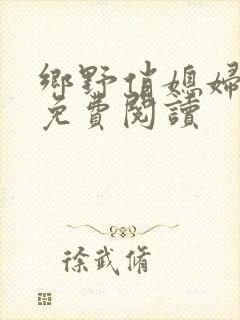 鄉野俏媳婦
免費閱讀
徐武脩